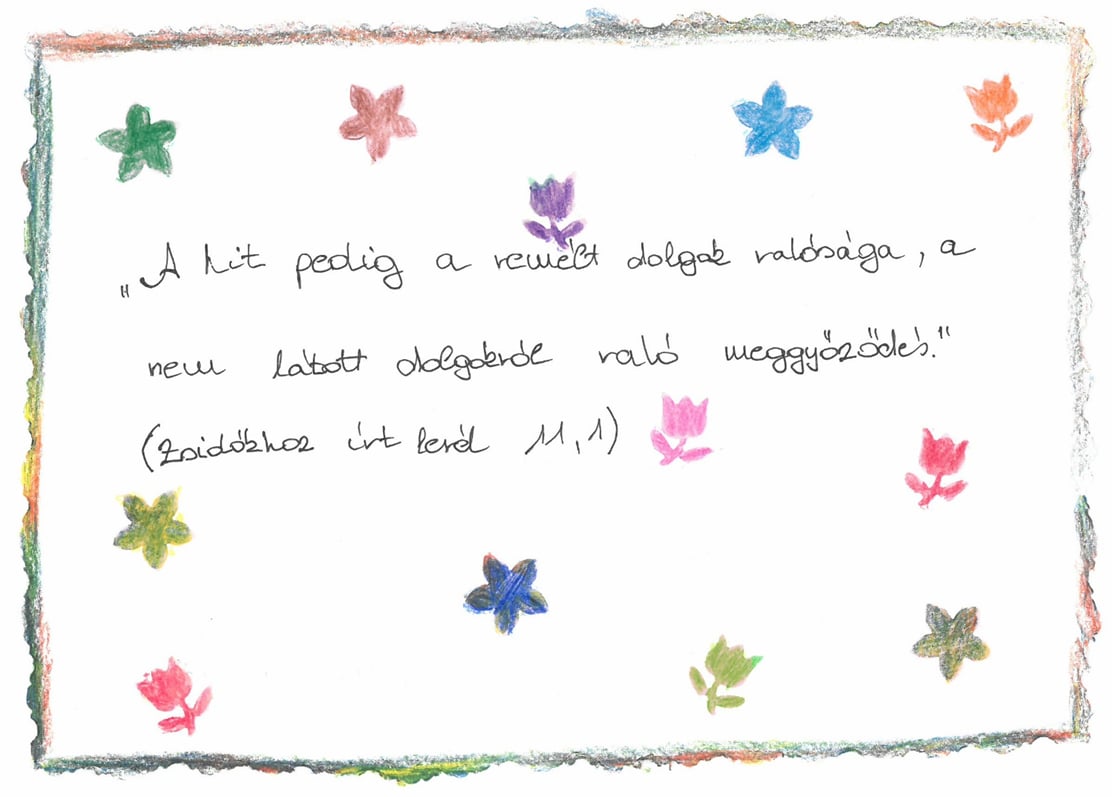 „A hit pedig a remélt dolgok valósága, a
nem látott dolgokról való meggyőződés."
(Zsidókhoz írt levél 11,1)